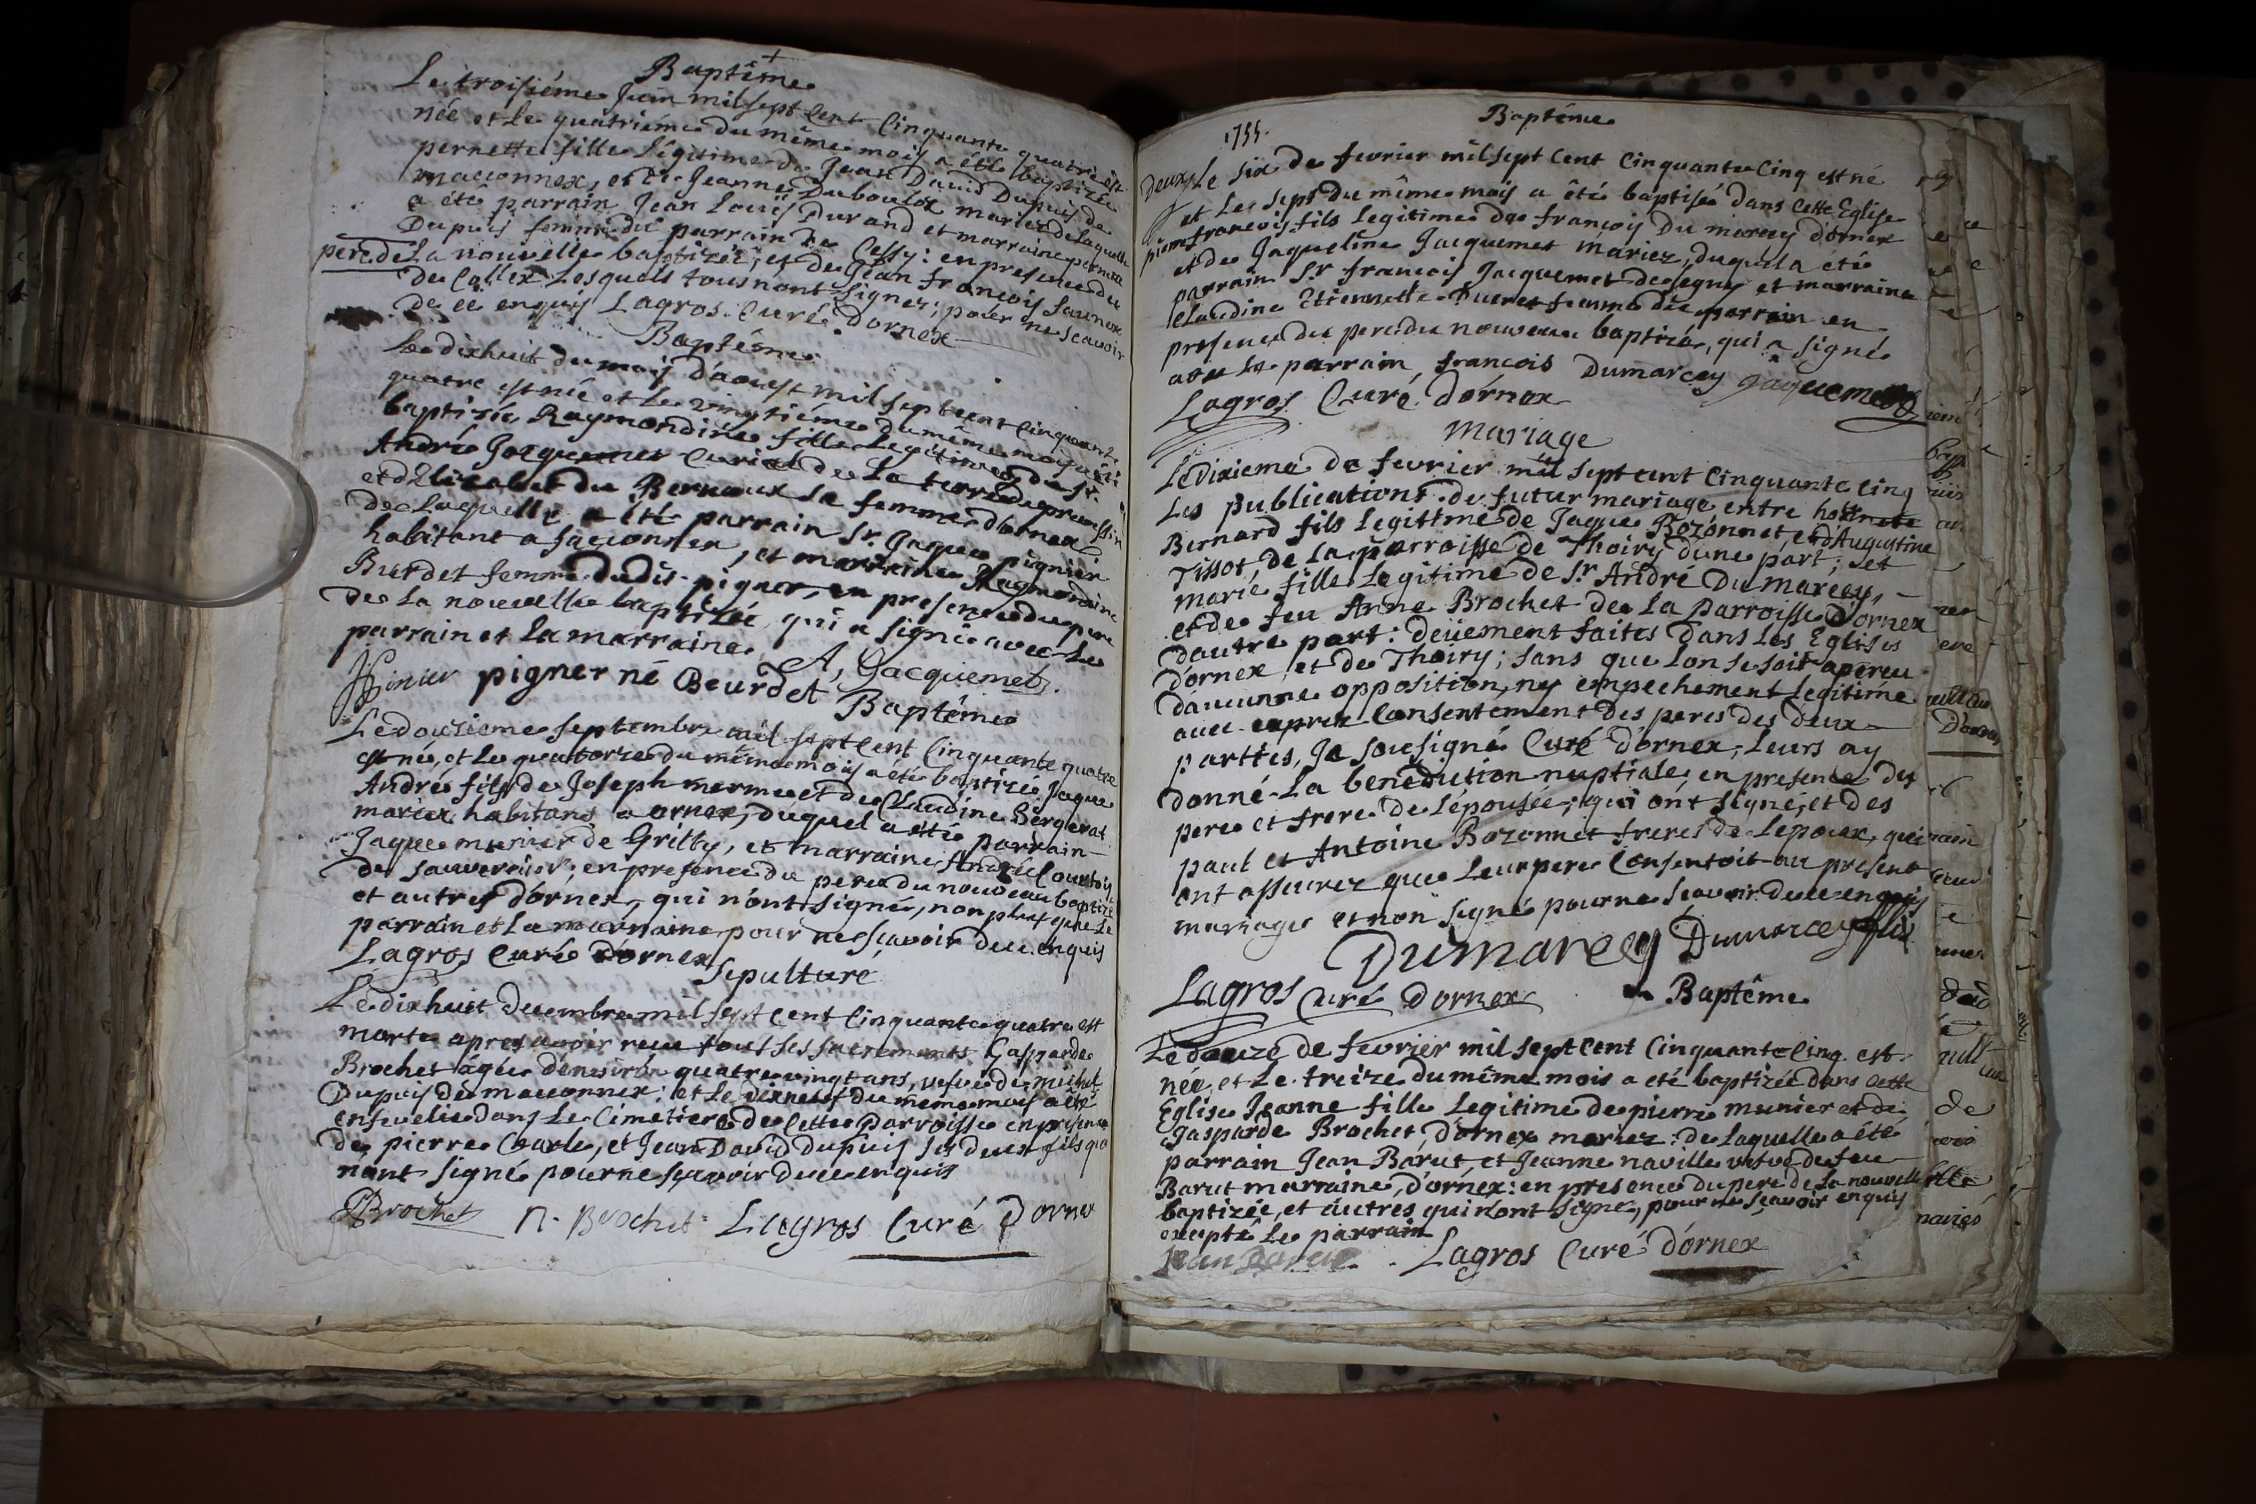 Baptême
Le troisiéme Juin mil sept Cent Cinquante quatre est
née et le quatriéme du même mois a été baptizée
pernette fille Légitime de Jean David Dupuis de
maconnex, et de Jeanne Duboulox mariez de laquelle
a été parrain Jean Louïs Durand et marraine pernette
Dupuis femme du parrain de Cessy: en presence du
pere de La nouvelle baptizée; et de Jean François Saunex
de Collex Lesquels tous nont signez, pour ne scavoir
de ce enquis Lagros Curé dornex
Baptême
Le dixhuit du mois daoust mil sept cent Cinquante
quatre est née et le vingtiéme du même mois a été
baptizée Raymondine fille Legitime de Sr.
André Jacquemet Curial de La terre de prevessin
et dElizabet du Bernoux sa femme dornex
de Laquelle a été parrain Sr. Jaques pignier
habitant a saconnex, et marraine Raymondine
Burdet femme dudit pigner, en presence du pere
de La nouvelle baptizée qui a signé avec Le
parrain et La marraine A, Jacquemet.
Pinier pigner né Beurdet
Baptême
Le douzieme septembre mil sept Cent Cinquante quatre
est né, et le quatorze du même mois a été baptizé Jaque
André fils de Joseph mermet et de Claudine Bergerat
mariez habitans a ornex, duquel a été parrain
Jaque munier de Grilly, et marraine André Courtois
de sauvernier: en presence du pere du nouveau baptizé
et autres dórnex, qui nónt signé, non plus que Le
parrain et La marraine pour ne scavoir de ce enquis
Lagros Curé dornex
Sepulture
Le dixhuit Decembre mil sept cent Cinquante quatre est
morte apres avoir recu tout ses sacrements Gasparde
Brochet âgée dénvirón quatre vingt ans, vefve de michel
Dupuis de maconnex: et le dixneuf du meme mois a été
ensevelie dans Le Cimetiere de Cette parroisse en presence
de pierre Charle, et Jean David dupuis ses deux fils qui
nónt signé pour ne scavoir de ce enquis
Brochet N. Brochet Lagros Curé Dornex
1755.
Baptême
Le six de fevrier mil sept Cent Cinquante Cinq est né
et Le sept du même mois a été baptisé dans Cette Eglise
françois fils legitime de françois Du marcey dórnex
et de Jaqueline Jacquemet mariez, duquel a eté
parrain Sr françois Jacquemet de segny et marraine
Claudine Etiennette Ducret femme du parrain en
presence du pere du nouveau baptizé, qui a signé
avec Le parrain, francois Dumarcey Jaquemet
Lagros Curé dórnex
Mariage
Le dixieme de fevrier mil sept cent Cinquante Cinq
Les publications de futur mariage entre honnete
Bernard fils legitime de Jaque Bozónnet et dAugustine
Tissot de La parroisse de Thoiry dune part; et
marie fille Legitime de Sr André Dumarcey,
et de feu Anne Brochet de La parroisse dornex
dautre part: deüement faites dans Les Eglises
dornex et de Thoiry; sans que Lon se soit apercu
daucunne opposition, ny empechement legitime
avec exprez Consentement des peres des deux
partties, Je sousigné Curé dornex; Leurs ay
donné La benediction nuptiale, en presence du
pere et frere de Lépousée, qui ónt signé, et des
paul et Antoine Bozonnet freres de Lepoux, qui
ont assurez que Leur pere Consentoit au present
mariage et non signé pour ne scavoir de ce enquis
Dumarcey Dumarcey fils
Lagros Curé Dornex
Baptême
Le douze de fevrier mil sept Cent Cinquante Cinq est
née et Le treize du même mois a eté baptizée dans Cette
Eglise Jeanne fille Legitime de pierre munier et de
Gasparde Brochet dornex mariez: de Laquelle a été
parrain Jean Barut, et Jeanne naville vefve de feu
Barut marraine, dórnex: en presence du pere de La nouvelle
baptizée, et áutres qui nónt signé, pour ne scavoir enquis
excepté Le parrain
Jean Barut Lagros Curé dórnex